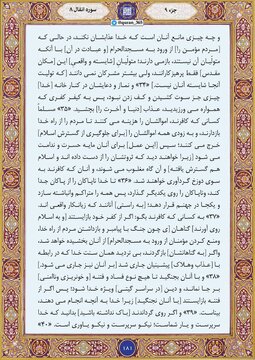 جزء ۹
@Quran_365
سوره انفال ۸
و چه چیزی مانع آنان است که خدا عذابشان نکند، در حالی که
[مردم مؤمن را] از ورود به مسجدالحرام [و عبادت در آن] با آنکه
متولیان آن نیستند، بازمی دارند؛ متولیان [شایسته و واقعی] این [مکان
مقدس] فقط پرهیزکارانند، ولی بیشتر مشرکان نمی دانند [که تولیت
آنجا شایسته آنان نیست]. «۳۴» و نماز و دعایشان در کنار خانه [خدا]
چیزی جز سوت کشیدن و کف زدن نبود، پس به کیفر کفری که
همواره می ورزیدید، عذاب [دنیا و آخرت را] بچشید. «۳۵» مسلماً
کسانی که کافرند، اموالشان را هزینه می کنند تا مردم را از راه خدا
بازدارند، و به زودی همه اموالشان را [برای جلوگیری از گسترش اسلام]
خرج می کنند؛ سپس [این عمل] برای آنان مایه حسرت و ندامت
می شود [زیرا خواهند دید که ثروتشان را از دست داده اند و اسلام
هم گسترش یافته] و آن گاه مغلوب می شوند، و آنان که کافرند به
سوی دوزخ گردآوری خواهند شد. «۳۶» تا خدا ناپاکان را از پاکان جدا
کند، و ناپاکان را روی یکدیگر گذارد، پس همه را متراکم و انباشته سازد
و یکجا در جهنم قرار دهد؛ [به راستی] آنانند که زیانکار واقعی اند.
«۳۷» به کسانی که کافرند بگو: اگر از کفر خود بازایستند [و به اسلام
روی آورند] گناهان [ی چون جنگ با پیامبر و بازداشتن مردم از راه خدا،
ومنع کردن مؤمنان از ورود به مسجدالحرام] از آنان بخشیده خواهد شد،
و اگر [به گناهانشان] بازگردند، بی تردید همان سنت خدا که در رابطه
با [عذاب وهلاک] پیشینیان جاری شد [بر آنان نیز جاری می شود].
«۳۸» و با آنان بجنگید تا هیچ نوع فساد و فتنه [و خونریزی و ناامنی]
بر جا نماند، و دین [در سراسر گیتی] ویژه خدا شود؛ پس اگر از
فتنه بازایستند [با آنان نجنگید] زیرا خدا به آنچه انجام می دهند،
بیناست. «۳۹» و اگر روی گرداندند [باک نداشته باشید] بدانید که خدا
سرپرست و یار شماست؛ نیکو سرپرست و نیکو یاوری است. «۴۰»
۱۸۱